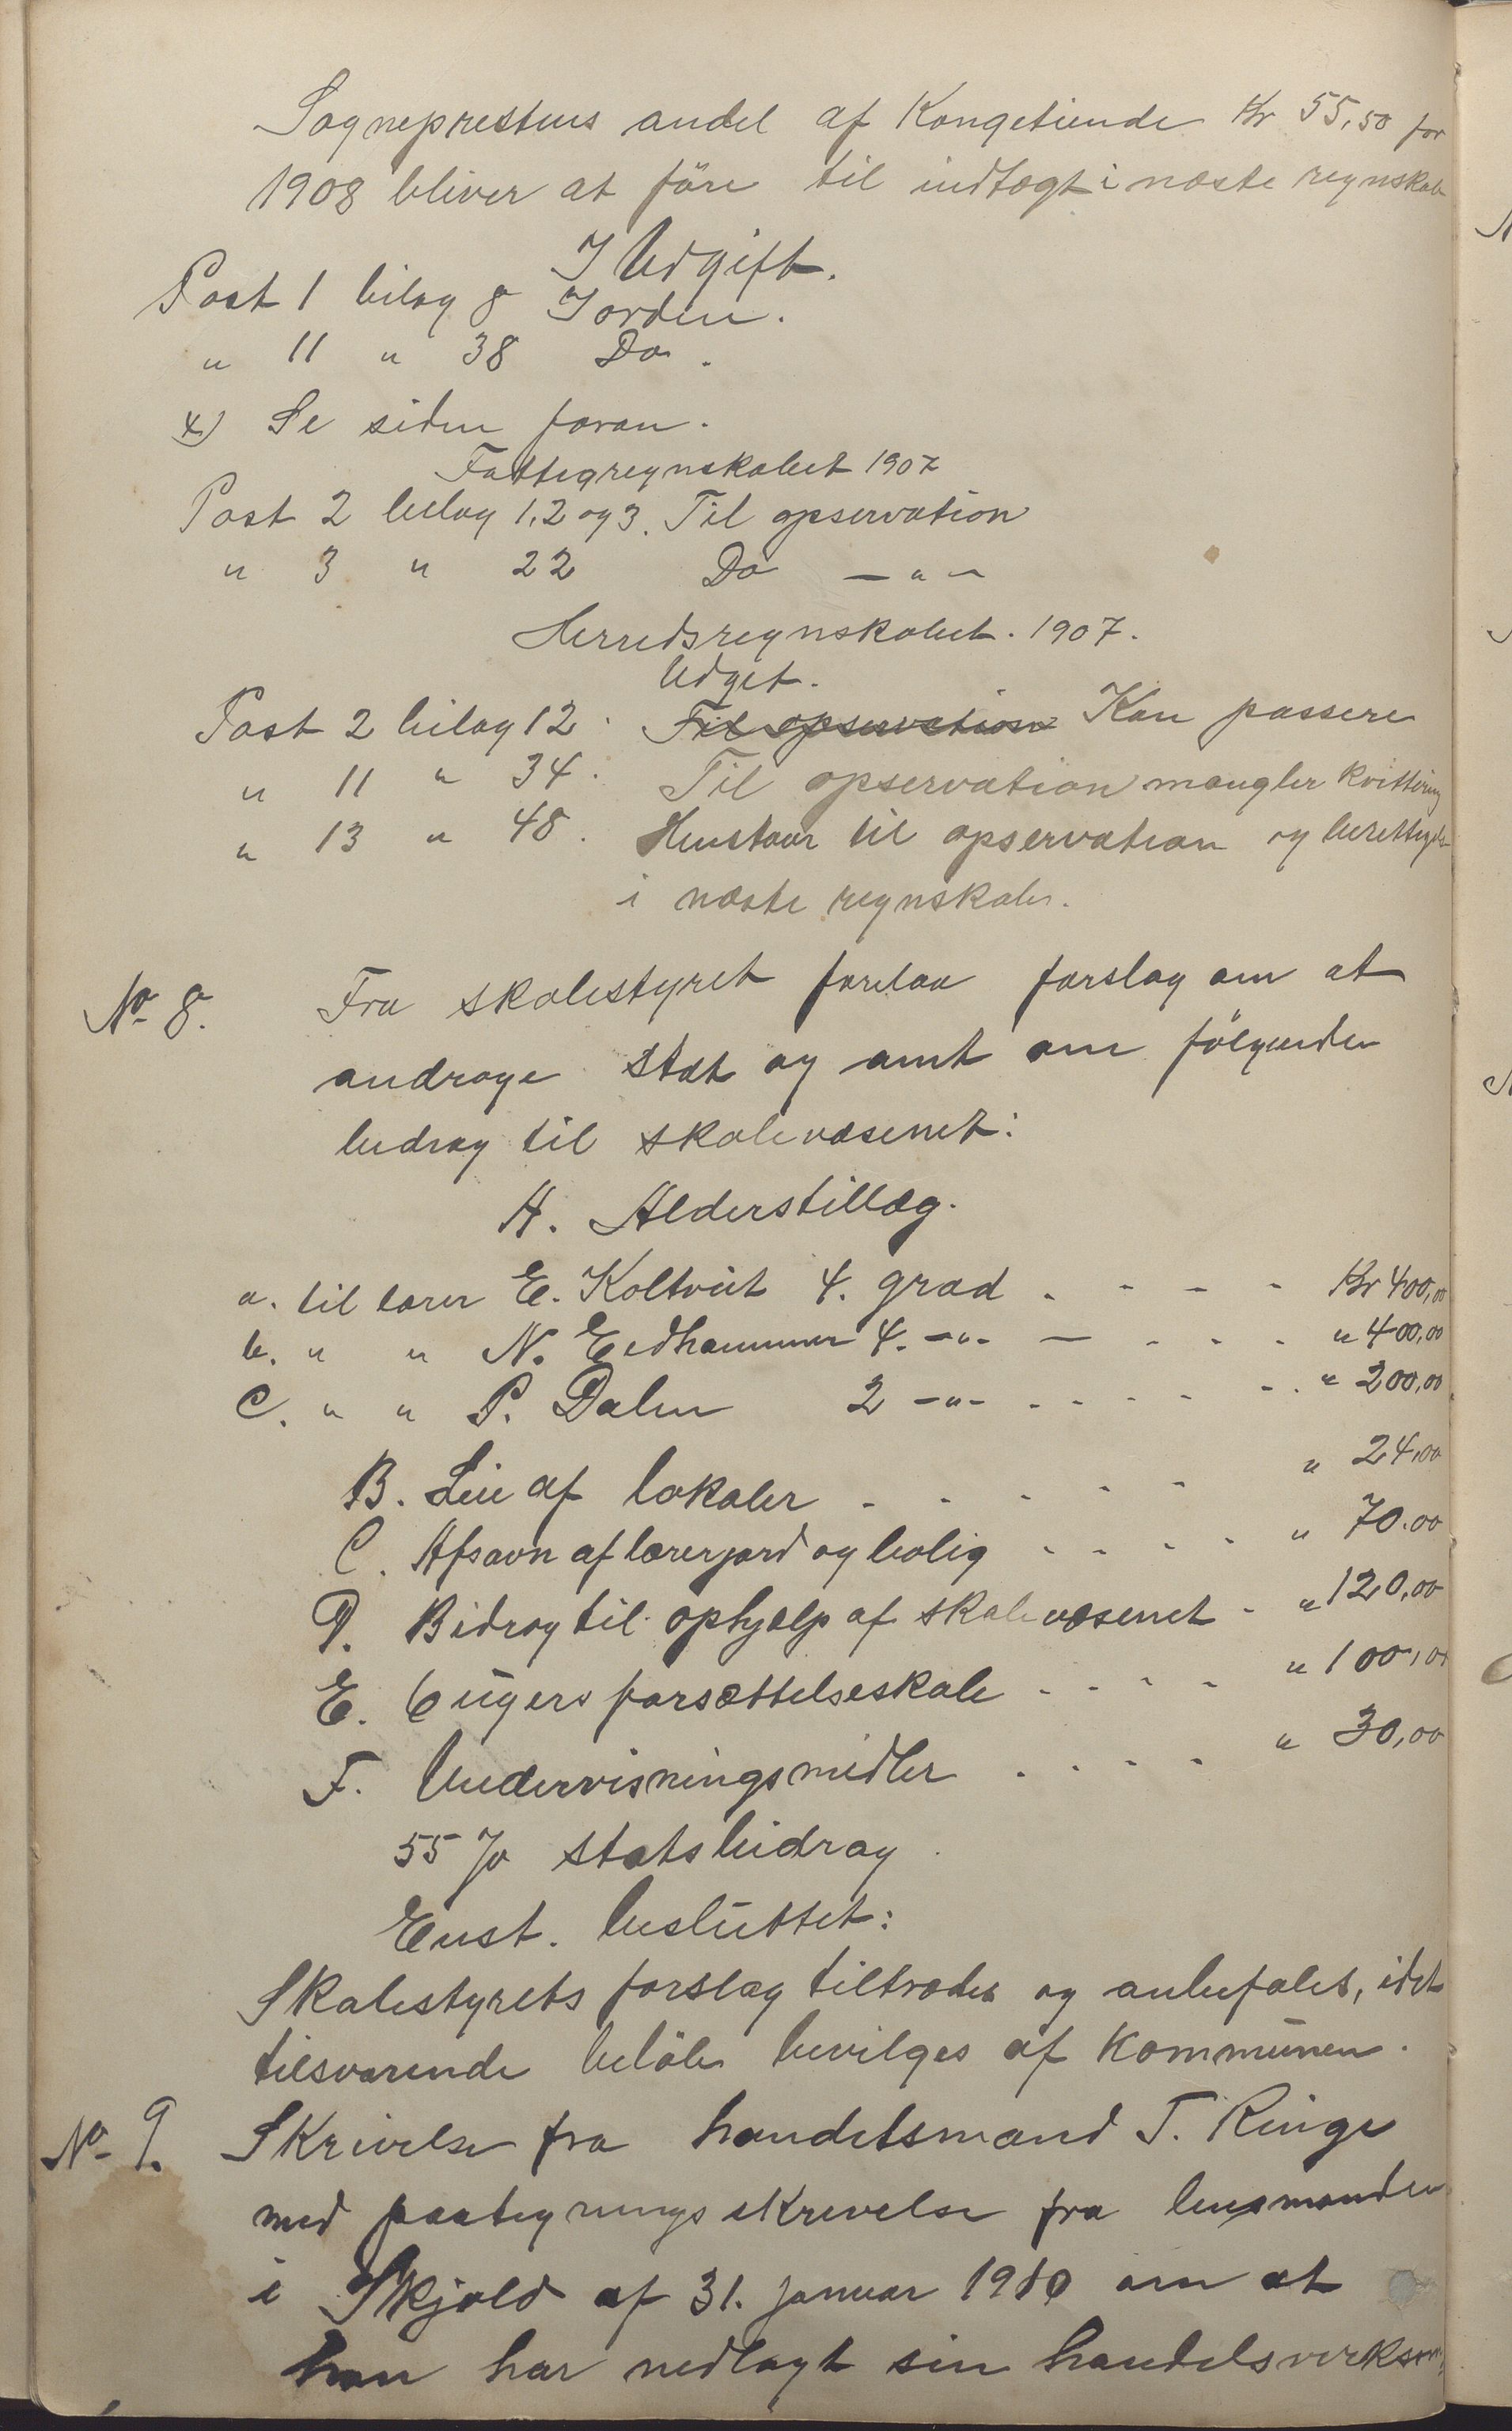 Sogneprestens andel af Kongetiende Kr 55,50 for
1908 bliver at före til indtægt i næste regnskab
I Udgift.
Post 1 bilag 8 I orden.
" 11 " 38 Do.
x) Se siden foran.
Fattigregnskabet 1907
Post 2 bilag 1, 2 og 3. Til opservation
" 3 " 22 Do — " —
Herredsregnskabet. 1907.
Udget.
Post 2 bilag 12. Til opservation Kan passere
" 11 " 34. Til opservation mangler kvittering
" 13 " 48. Henstaar til opservation og berettigelse
i næste regnskab.
No 8. Fra skolestyret forelaa forslag om at
andrage stat og amt om fölgende
bidrag til skolevæsenet:
A. Alderstillæg.
a. til lærer E. Koltveit 4. grad . - - - Kr 400,00
b. " " N. Eidhammer 4. —"— — - - - " 400,00
C. " " P. Dalen 2 —"— - - - - - - " 200,00
B. Leie af lokaler - - - - - " 24,00
C. Afsavn af lærerjord og bolig - - - - " 70.00
D. Bidrag til ophjælp af skolevæsenet - " 120,00
E. 6 ugers forsættelseskole - - - - " 100,00
F. Undervisningsmidler . - - - " 30,00
55 % statsbidrag.
Enst. besluttet:
Skolestyrets forslag tiltrædes og anbefales, idet
tilsvarende belöb bevilges af kommunen.
No 9. Skrivelse fra handelsmand T. Ringe
med paategningsskrivelse fra lensmanden
i Skjold af 31. januar 1910 om at
han har nedlagt sin handelsverksom